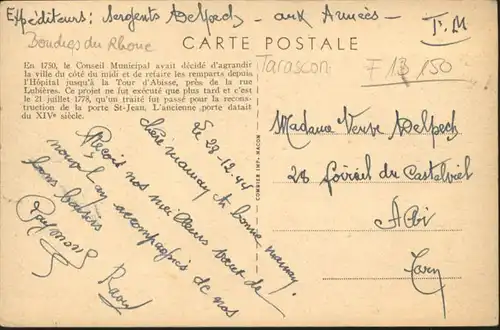 Expéditeurs: Sergents Delpech - aux Armées - F.M
Bouches du Rhone
CARTE POSTALE
Tarascon
F 13 150
En 1750, le Conseil Municipal avait décidé d'agrandir
la ville du côté du midi et de refaire les remparts depuis
l'Hôpital jusqu'à la Tour d'Abisse, près de la rue
Lubières. Ce projet ne fut exécuté que plus tard et c'est
le 21 juillet 1778, qu'un traité fut passé pour la recons-
truction de la porte St-Jean. L'ancienne porte datait
du XIVe siècle.
Le 23-12.44
Chère mamay et bonne mamay.
Reçois nos meilleurs vœux de
nouvel an accompagnés de nos
bons baisers
Raymond
Raoul
COMBIER IMP. MACON
Madame Veuve Delpech
28 du Castelviel
Albi
Tarn